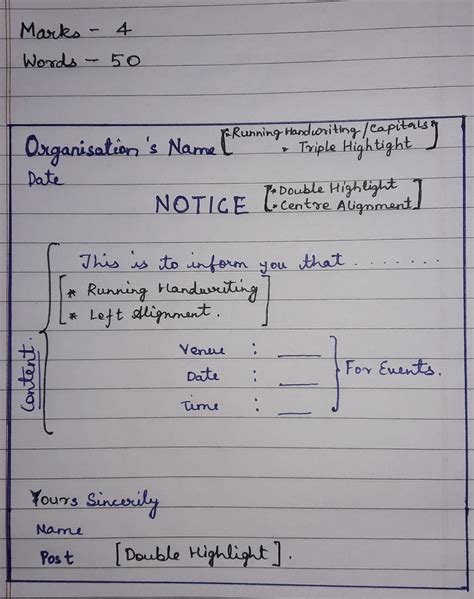 Marks - 4
Words - 50
Organisation's Name [* Running Handwriting / Capitals
* Triple Hightight]
Date
NOTICE [* Double Highlight
* Centre Alignment]
This is to inform you that .......
[* Running Handwriting
* Left Alignment.]
Content.
Venue : ___
Date : ___
Time : ___
} For Events.
Yours Sincerily
Name
Post [Double Highlight].